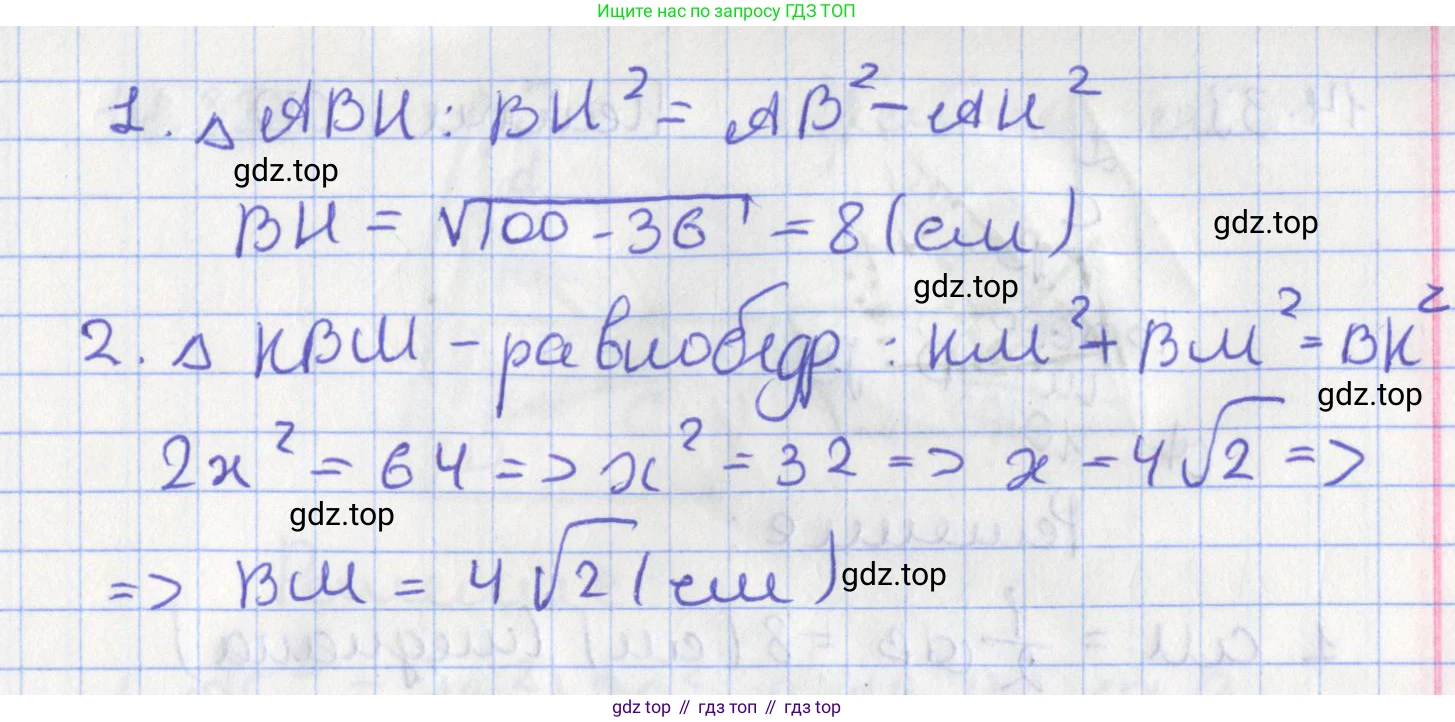 Ищите нас по запросу ГДЗ ТОП
1. △ ABH : BH² = AB² - AH²
gdz.top
BH = √100 - 36 = 8 (см)
gdz.top
gdz.top
2. △ KBM - равнобедр. : KM² + BM² = BK²
gdz.top
2x² = 64 => x² = 32 => x = 4√2 =>
gdz.top
=> BM = 4√2 (см)
gdz.top
gdz top // гдз топ // gdz top